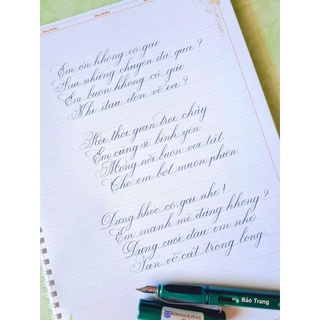 Em ổn không cô gái
Sau những chuyện đã qua?
Em buồn không cô gái
Khi đau đớn vỡ oà?
Rồi thời gian trôi chảy
Em cũng sẽ bình yên
Mong nỗi buồn vơi tắt
Cho em bớt muộn phiền
Đừng khóc cô gái nhé!
Em mạnh mẽ đúng không?
Đừng cười đau em nhé
Tan vỡ cất trong lòng...
Bảo Trang